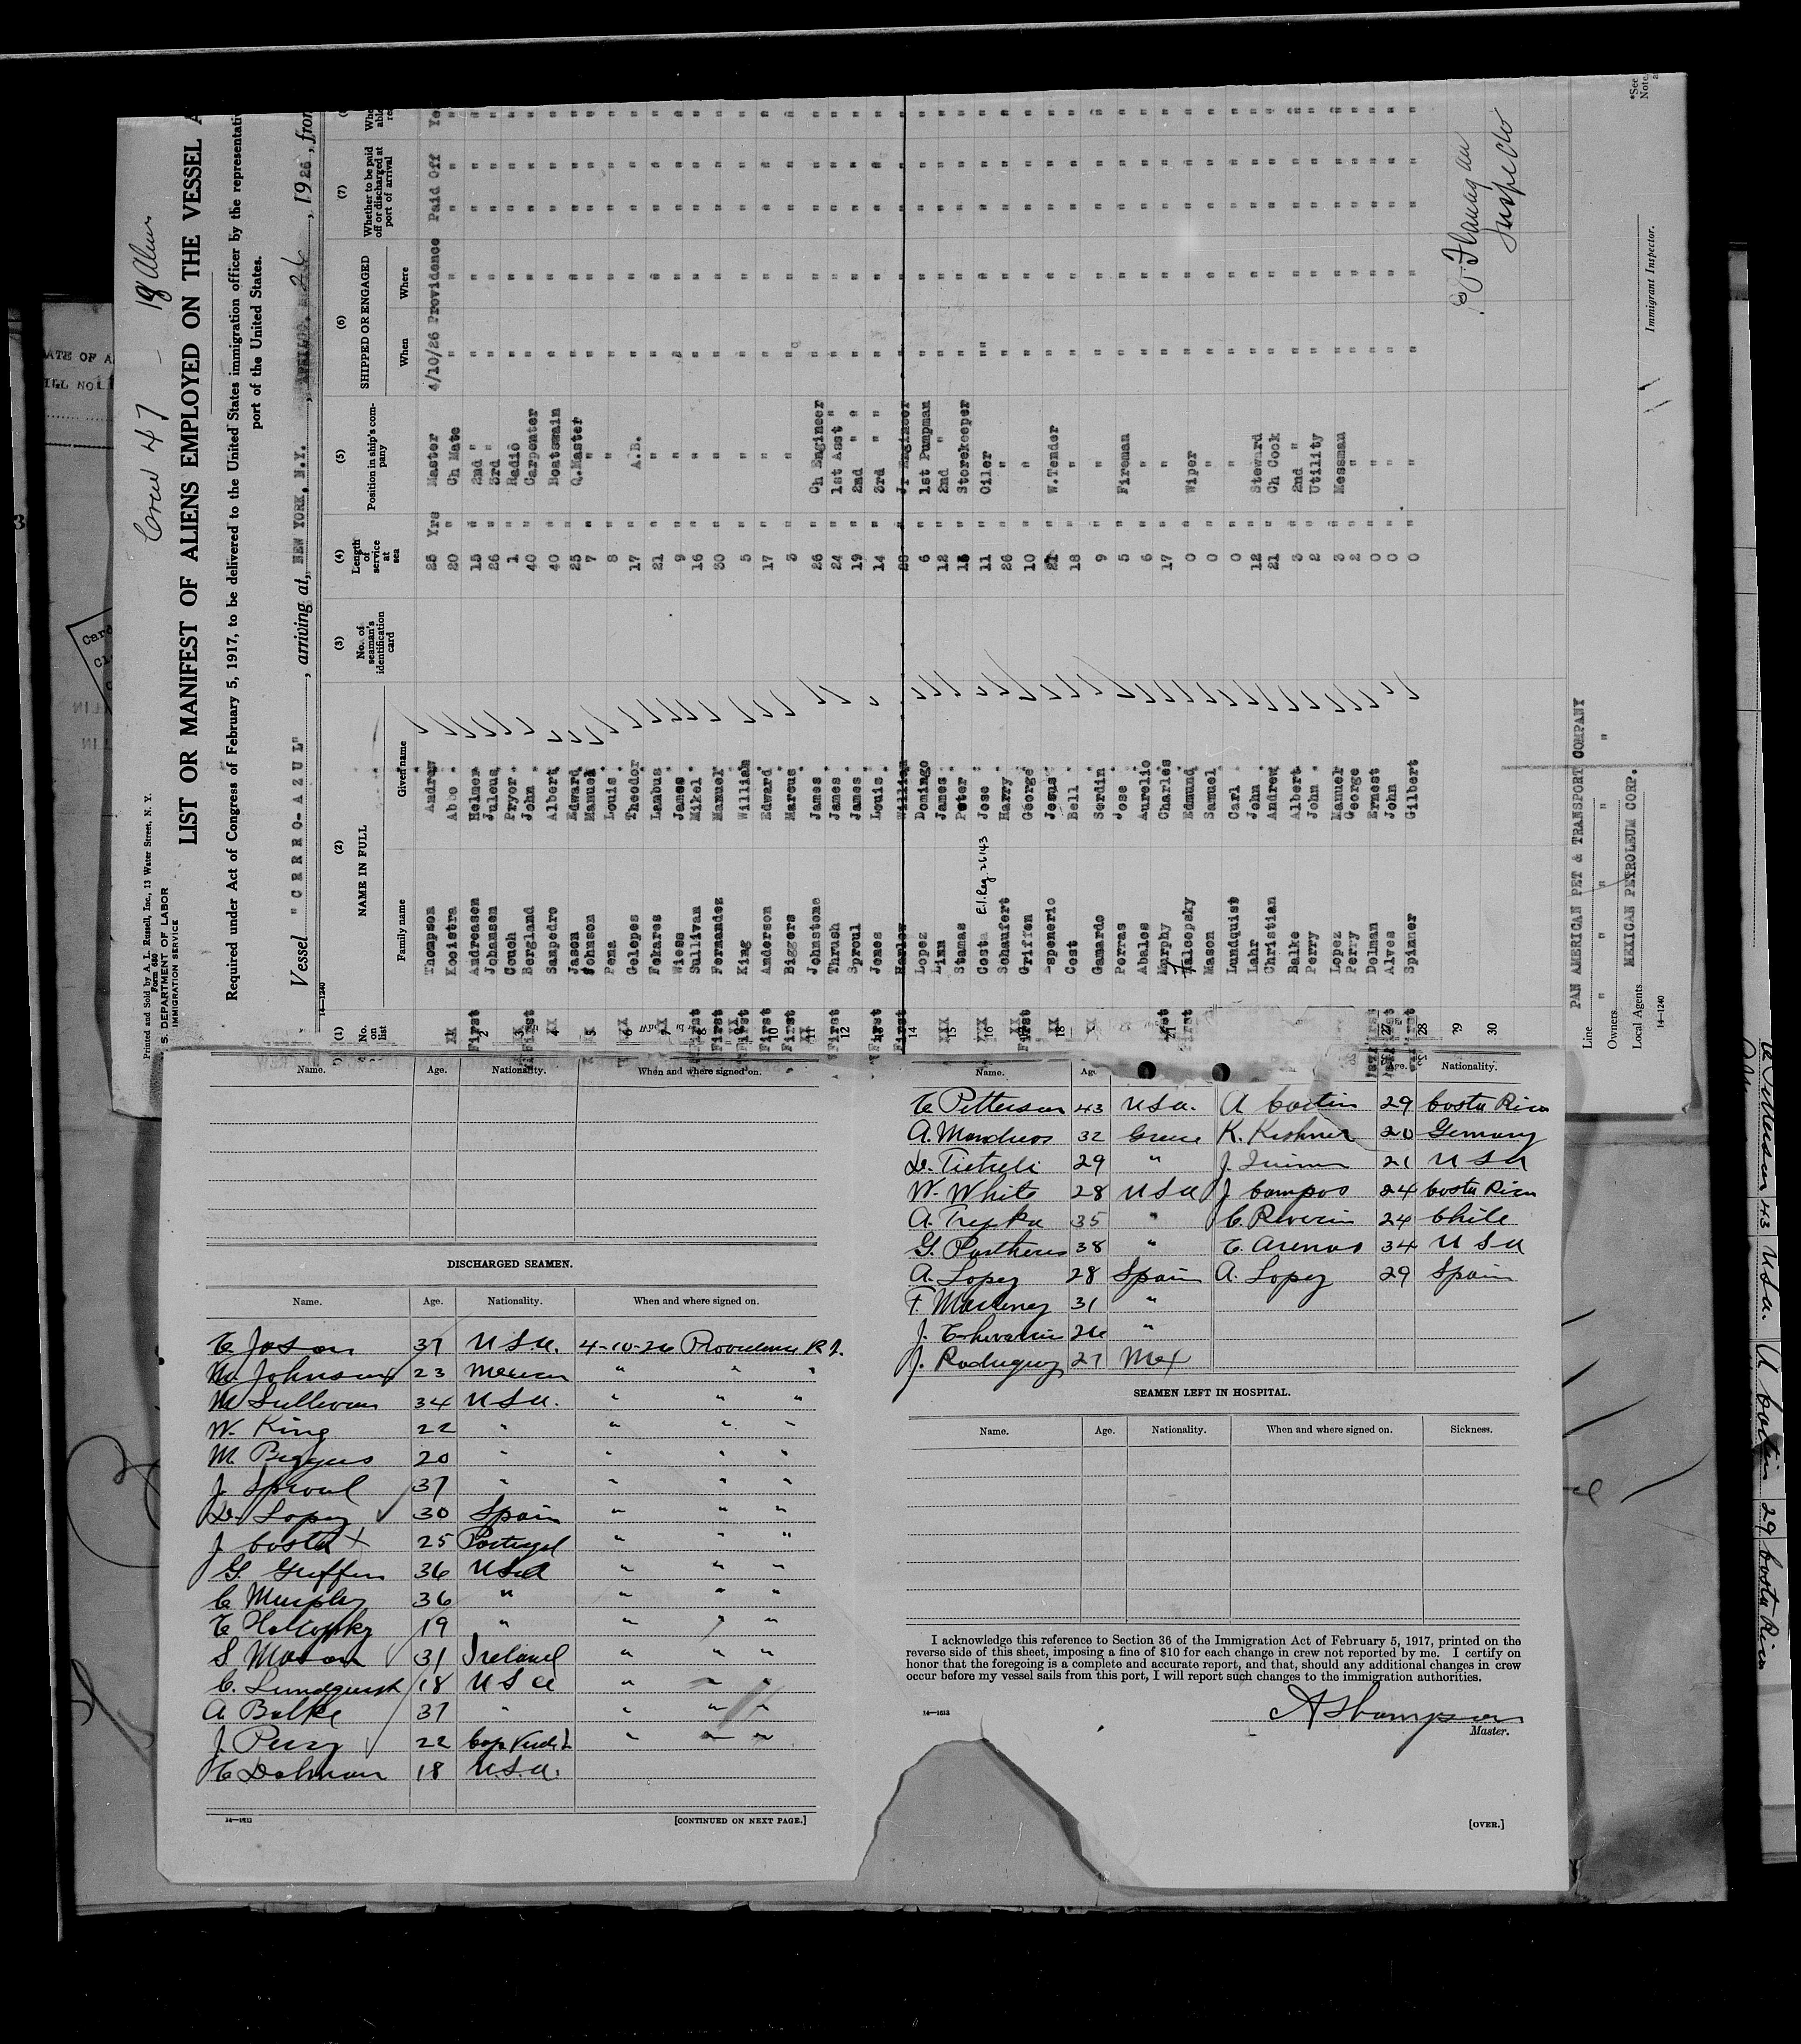 Crew 47 - 18 Aliens
Printed and Sold by A. L. Russell, Inc., 13 Water Street, N. Y.
Form 680
S. DEPARTMENT OF LABOR
IMMIGRATION SERVICE
LIST OR MANIFEST OF ALIENS EMPLOYED ON THE VESSEL A
Required under Act of Congress of February 5, 1917, to be delivered to the United States immigration officer by the representati
port of the United States.
Vessel "CERRO-AZUL", arriving at, NEW YORK, N.Y., APRIL 26, 1926, from
14—1240
(1) (2) (3) (4) (5) (6) (7)
No. on list NAME IN FULL No. of seaman's identification card Length of service at sea Position in ship's company SHIPPED OR ENGAGED Whether to be paid off or discharged at port of arrival
Family name Given name When Where
Thompson Andrew 25 Yrs Master 4/10/26 Providence Paid Off Ye
Kooistra Abbo 20 " Ch Mate " " " " "
First 2 Andreasen Helmer 15 " 2nd " " " " " "
Johansen Juleus 26 " 3rd " " " " " "
Couch Pryor 1 " Radio " " " " "
First Bergland John 40 " Carpenter " " " " "
Sanpedro Albert 40 " Boatswain " " " " "
Jason Edward 25 " Q.Master " " " " "
Johnson Manuel 7 " " " " " " "
Pena Louis 8 " " " " " " "
Galopes Theodor 17 " A.B. " " " " "
Fokares Lambus 21 " " " " " " "
Wiess James 9 " " " " " " "
Sullivan Mikel 16 " " " " " " "
First Fernandez Manuel 30 " " " " " " "
First King William 5 " " " " " " "
First Anderson Edward 17 " " " " " " "
First Biggers Marcus 3 " " " " " " "
Johnstone James 26 " Ch Engineer " " " " "
First 12 Thrush James 24 " 1st Asst " " " " " "
Sproul James 19 " 2nd " " " " " " "
First Jones Louis 14 " 3rd " " " " " " "
First Harlow William 28 " Jr Engineer " " " " "
14 Lopez Domingo 6 " 1st Pumpman " " " " "
15 Linn James 12 " 2nd " " " " " "
Stamas Peter 15 " Storekeeper " " " " "
16 Costa E.I. Reg. 26143 Jose 11 " Oiler " " " " "
Schaufert Harry 26 " " " " " " "
First Griffen George 10 " " " " " " "
18 Espenerio Jesus 21 " W.Tender " " " " "
Cost Bell 18 " " " " " " "
Gamardo Serdin 9 " " " " " " "
Porras Jose 5 " Fireman " " " " "
Abales Aurelio 6 " " " " " " "
21 First Murphy Charles 17 " " " " " " "
First Halcopsky Edmund 0 " Wiper " " " " "
Mason Samuel 0 " " " " " " "
Lundquist Carl 0 " " " " " " "
Lahr John 12 " Steward " " " " "
Christian Andrew 21 " Ch Cook " " " " "
Balke Albert 3 " 2nd " " " " " "
Perry John 2 " Utility " " " " "
Lopez Manuel 3 " Messman " " " " "
Perry George 2 " " " " " " "
Dolman Ernest 0 " " " " " " "
27 Alves John 0 " " " " " " "
28 Spinner Gilbert 0 " " " " " " "
29
30
Flanagan
Inspector
Line PAN AMERICAN PET & TRANSPORT COMPANY
Owners " " " " "
Local Agents MEXICAN PETROLEUM CORP.
Immigrant Inspector.
14—1240
*See
Note
Name. Age. Nationality. When and where signed on.
DISCHARGED SEAMEN.
Name. Age. Nationality. When and where signed on.
E Jason 37 U.S.A. 4-10-26 Providence R I.
M. Johnson 23 Mexican " " "
M Sullivan 34 USA. " " "
W. King 22 " " " "
M. Biggers 20 " " " "
J. Sproul 37 " " " "
D. Lopez 30 Spain " " "
J Costa 25 Portugal " " "
G. Griffen 36 USA " " "
C Murphy 36 " " " "
E Halcopsky 19 " " " "
S Mason 31 Ireland " " "
C. Lundquist 18 USA " " "
A Balke 37 " " " "
J. Perry 22 Cape Verde I. " " "
E Dolman 18 U.S.A.
14—1613
[CONTINUED ON NEXT PAGE.]
Name. Age. Nationality.
E Petterson 43 USA. A Cortin 29 Costa Rica
A. Mandros 32 Greece K. Kishner 20 Germany
29 " J. 21 USA
W. White 28 USA J Campos 24 Costa Rica
A. Trepka 35 " C. 24 Chile
G. 38 " E. Arenas 34 USA
A. Lopez 28 Spain A. Lopez 29 Spain
F. 31 "
J. 26 "
J. Rodriguez 27 Mex
SEAMEN LEFT IN HOSPITAL.
Name. Age. Nationality. When and where signed on. Sickness.
I acknowledge this reference to Section 36 of the Immigration Act of February 5, 1917, printed on the
reverse side of this sheet, imposing a fine of $10 for each change in crew not reported by me. I certify on
honor that the foregoing is a complete and accurate report, and that, should any additional changes in crew
occur before my vessel sails from this port, I will report such changes to the immigration authorities.
A Thompson
Master.
14—1613
[OVER.]